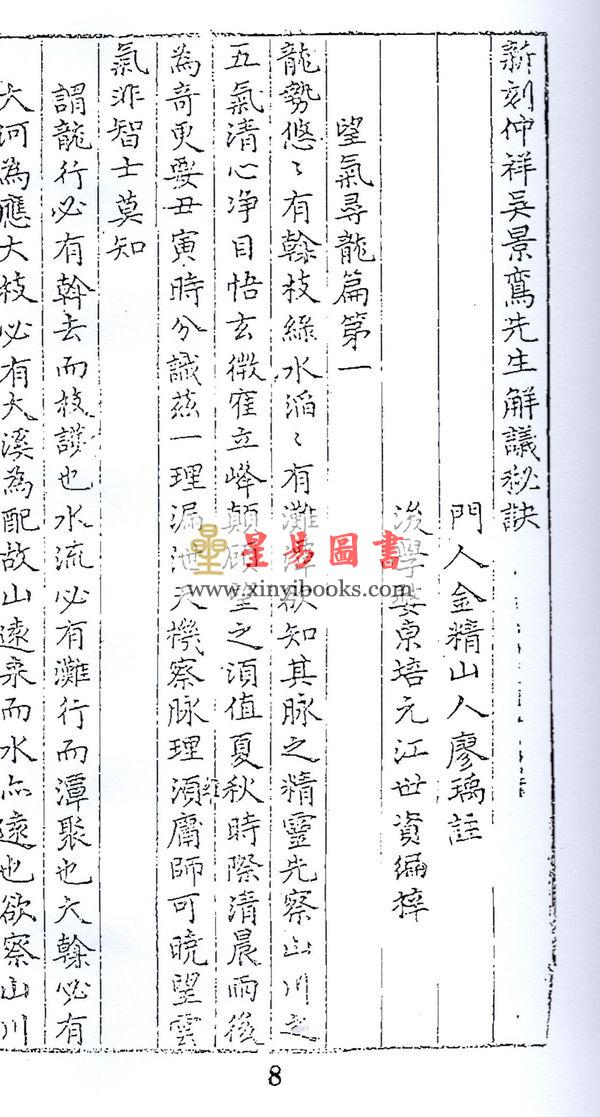 新刻仲祥吳景鸞先生解議秘訣
門人金精山人廖瑀註
後學婺東培元江世資編梓
望氣尋龍篇第一
龍勢悠〻有榦枝綠水滔〻有灘潭欲知其脉之精靈先察山川之
五氣清心净目悟玄微窄立峰顛碩望之須值夏秋時際清晨雨後
為奇更要丑寅時分識兹一理漏泄天機察脉理須庸師可曉望雲
氣非智士莫知
謂龍行必有榦去而枝護也水流必有灘行而潭聚也大榦必有
大河為應大枝必有大溪為配故山遠來而水亦遠也欲察山川
星易圖書
www.xinyibooks.com
8